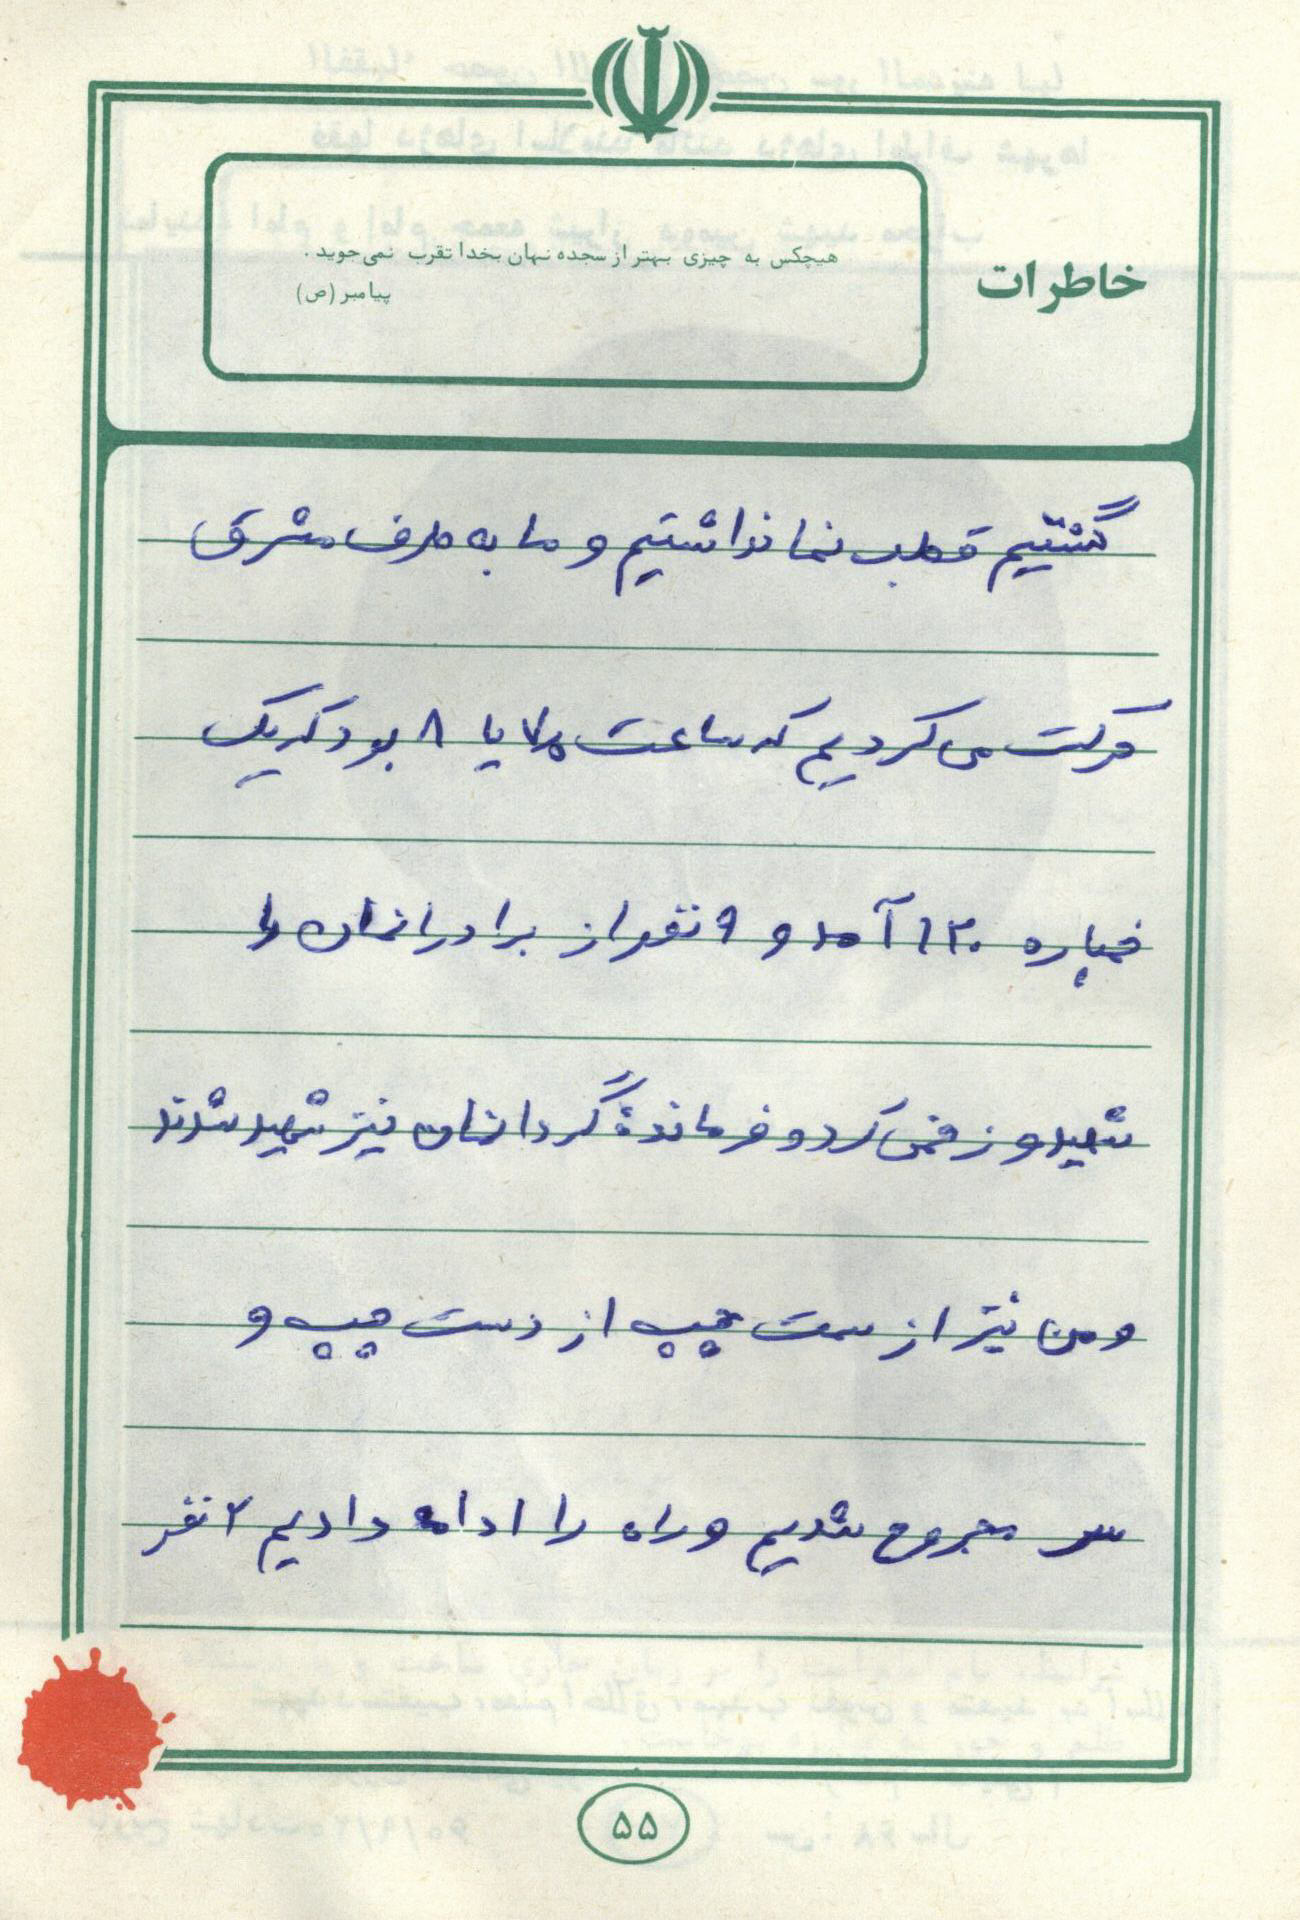 خاطرات
هیچکس به چیزی بهتر از سجده نهان بخدا تقرب نمی‌جوید .
پیامبر (ص)
گشتیم قطب نما نداشتیم و ما به طرف مشرق
حرکت می کردیم که ساعت ۷ یا ۸ بود که یک
خمپاره ۱۲۰ آمد و ۹ نفر از برادرانمان را
شهید و زخمی کرد و فرماندهٔ گردانمان نیز شهید شدند
و من نیز از سمت چپ از دست چپ و
سر مجروح شدیم و راه را ادامه دادیم ۲ نفر
۵۵